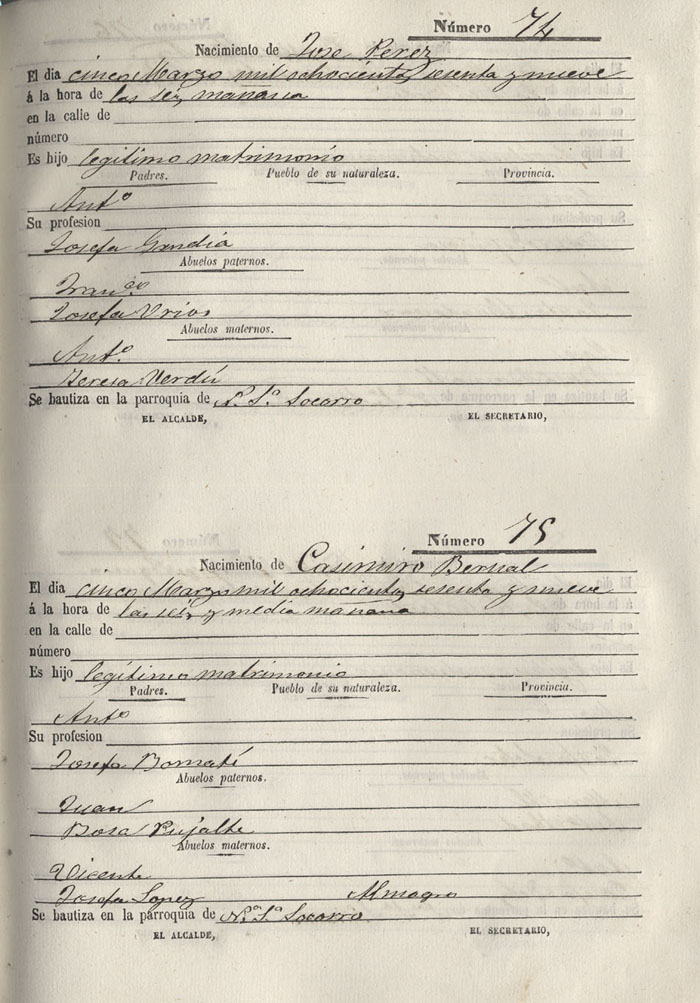 Número 74
Nacimiento de Jose Perez
El dia cinco Marzo mil ochocientos sesenta y nueve
á la hora de las seis mañana
en la calle de
número
Es hijo legitimo matrimonio
Padres. Pueblo de su naturaleza. Provincia.
Antº
Su profesion
Josefa Gandia
Abuelos paternos.
Francº
Josefa Urios
Abuelos maternos.
Antº
Teresa Verdú
Se bautiza en la parroquia de N.ª S.ª Socorro
EL ALCALDE, EL SECRETARIO,
Número 75
Nacimiento de Casimiro Bernal
El dia cinco Marzo mil ochocientos sesenta y nueve
á la hora de las seis y media mañana
en la calle de
número
Es hijo legitimo matrimonio
Padres. Pueblo de su naturaleza. Provincia.
Antº
Su profesion
Josefa Bornaté
Abuelos paternos.
Juan
Rosa Pujalte
Abuelos maternos.
Vicente
Josefa Lopez Almagro
Se bautiza en la parroquia de N.ª S.ª Socorro
EL ALCALDE, EL SECRETARIO,